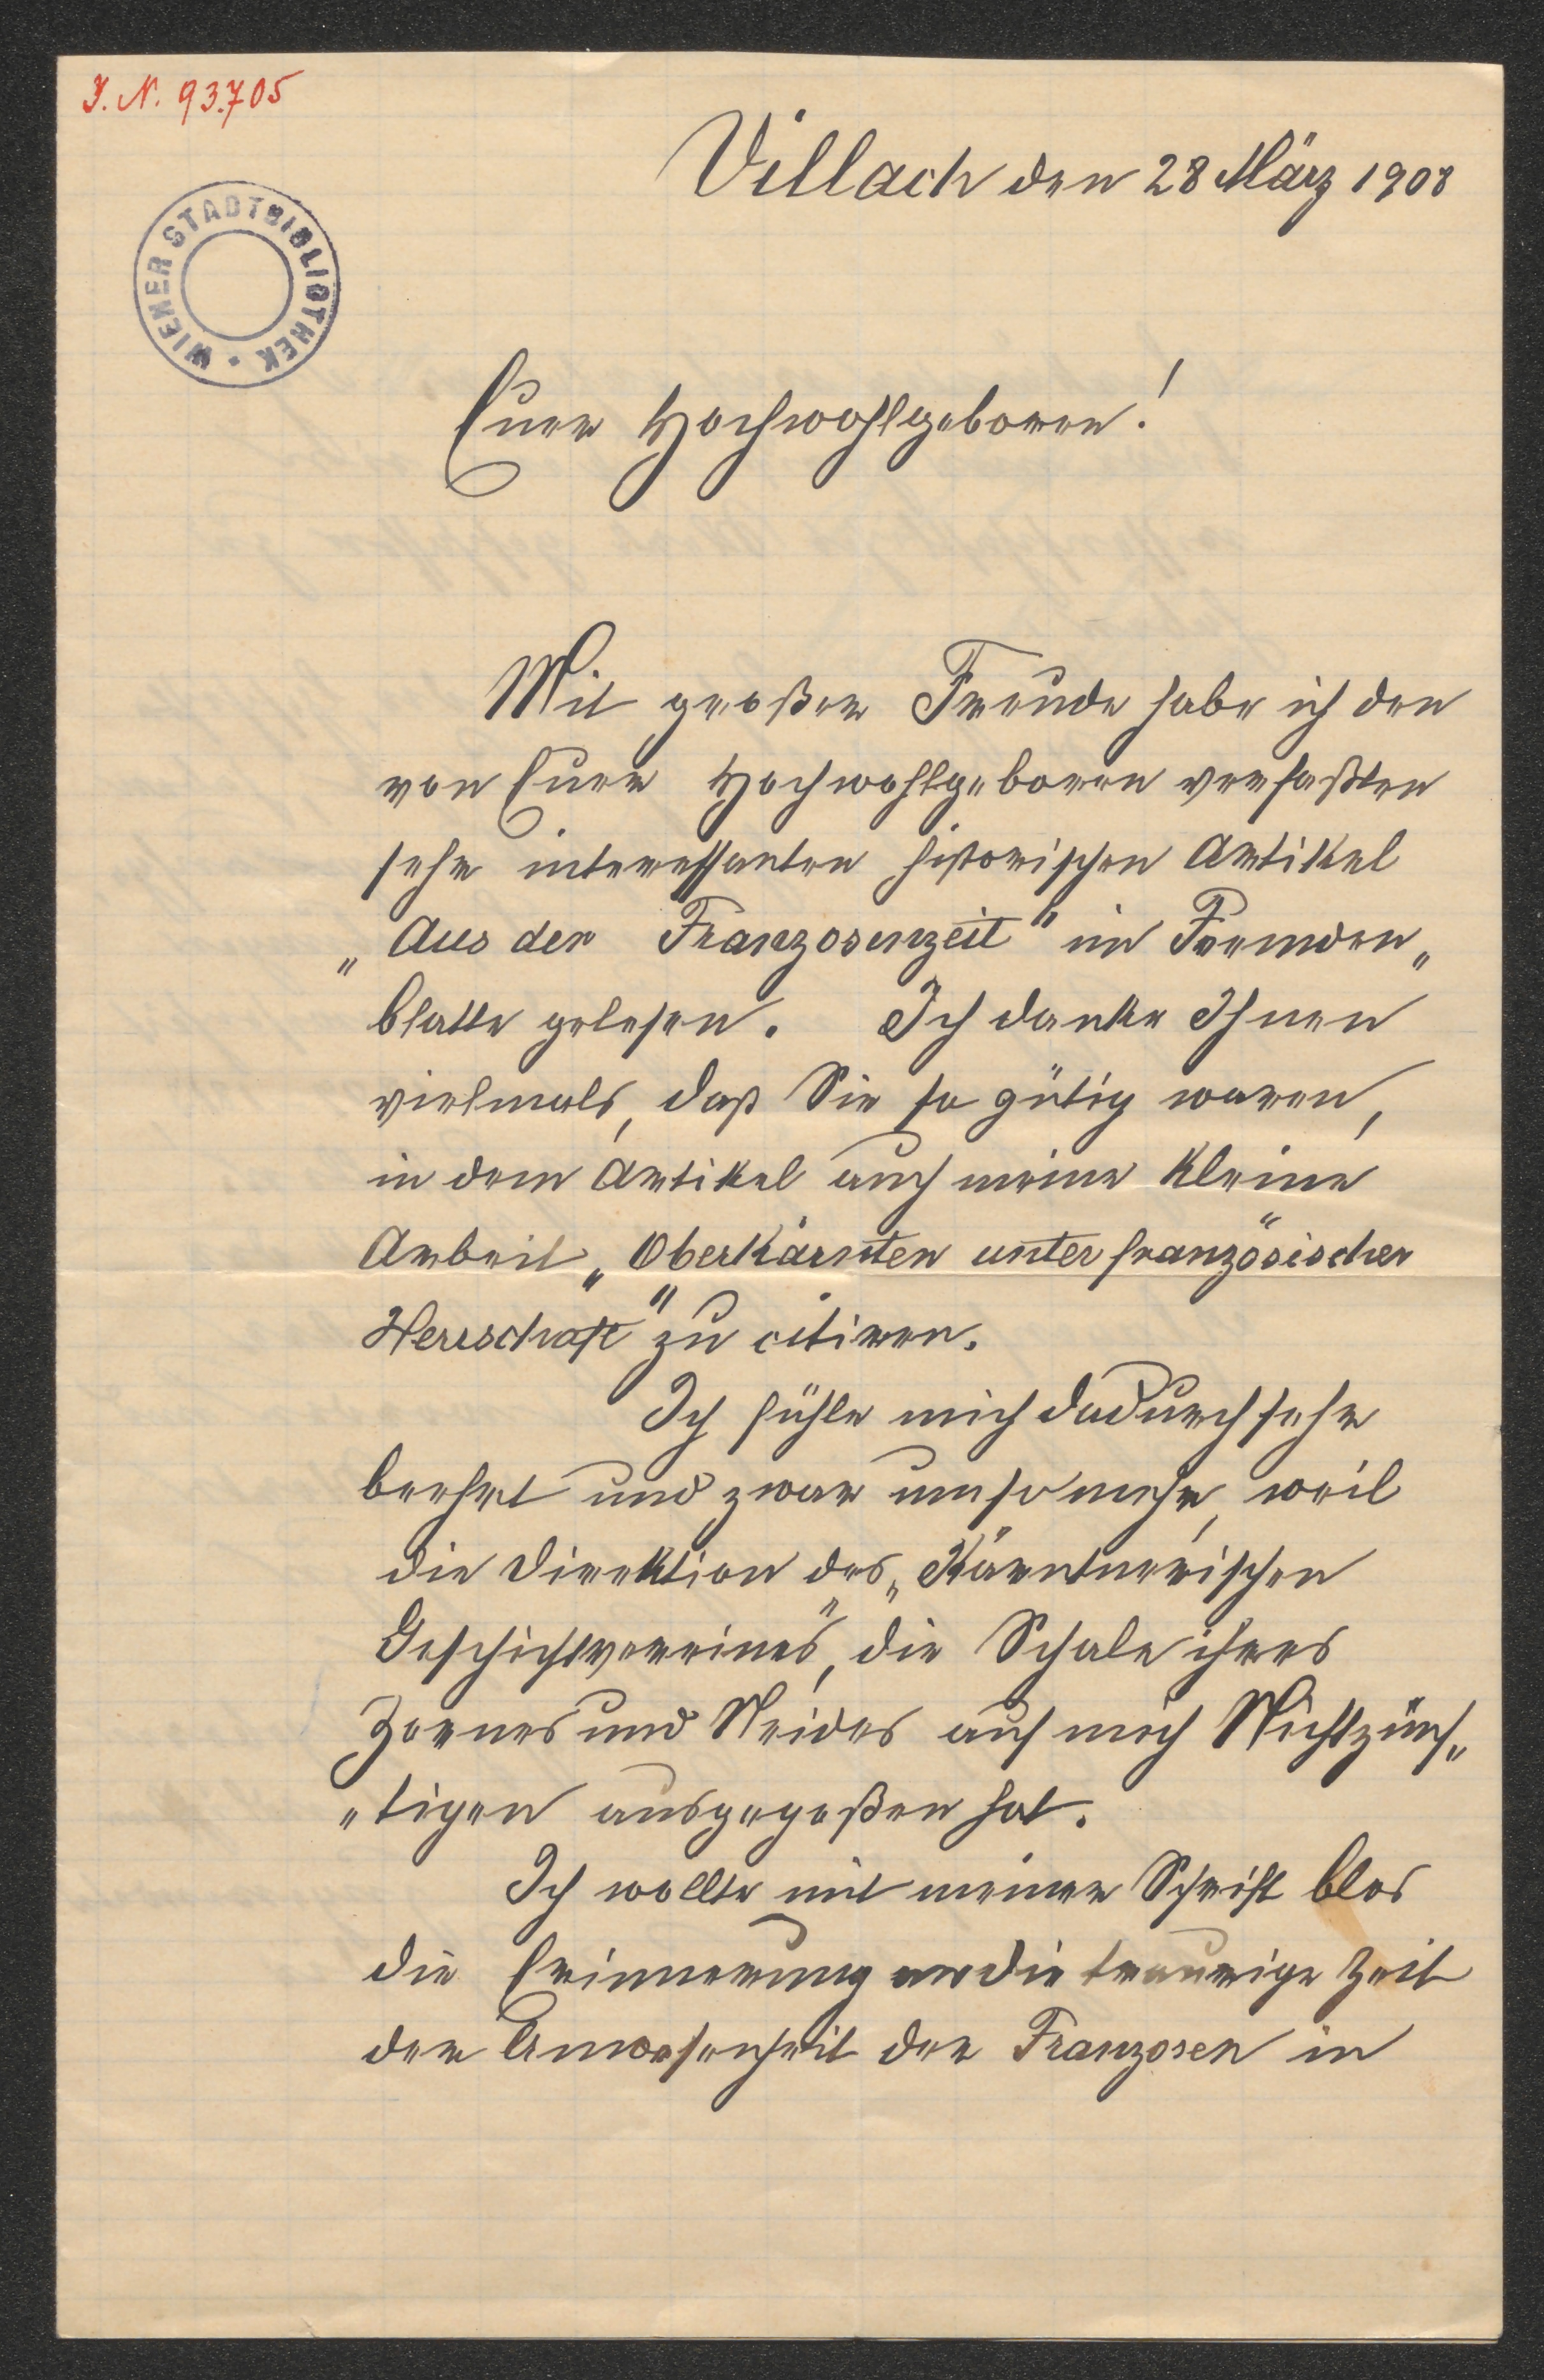 J. N. 93.705
Villach den 28 März 1908
WIENER STADTBIBLIOTHEK
Euer Hochwohlgeboren!
Mit großer Freude habe ich den
von Euer Hochwohlgeboren verfaßten
sehr interessanten historischen Artikel
„Aus der Franzosenzeit" im Fremden„
blatte gelesen. Ich danke Ihnen
vielmals, daß Sie so gütig waren,
in dem Artikel auch meine kleine
Arbeit „Oberkärnten unter französischer
Herrschaft" zu citiren.
Ich fühle mich dadurch sehr
beehrt und zwar umsomehr, weil
die Direktion des „Kärntnerischen
Geschichtvereines", die Schale ihres
Zornes und Neides auf mich Nichtzünf„
„tigen ausgegoßen hat.
Ich wollte mit meiner Schrift blos
die Erinnerung an die traurige Zeit
der Anwesenheit der Franzosen in